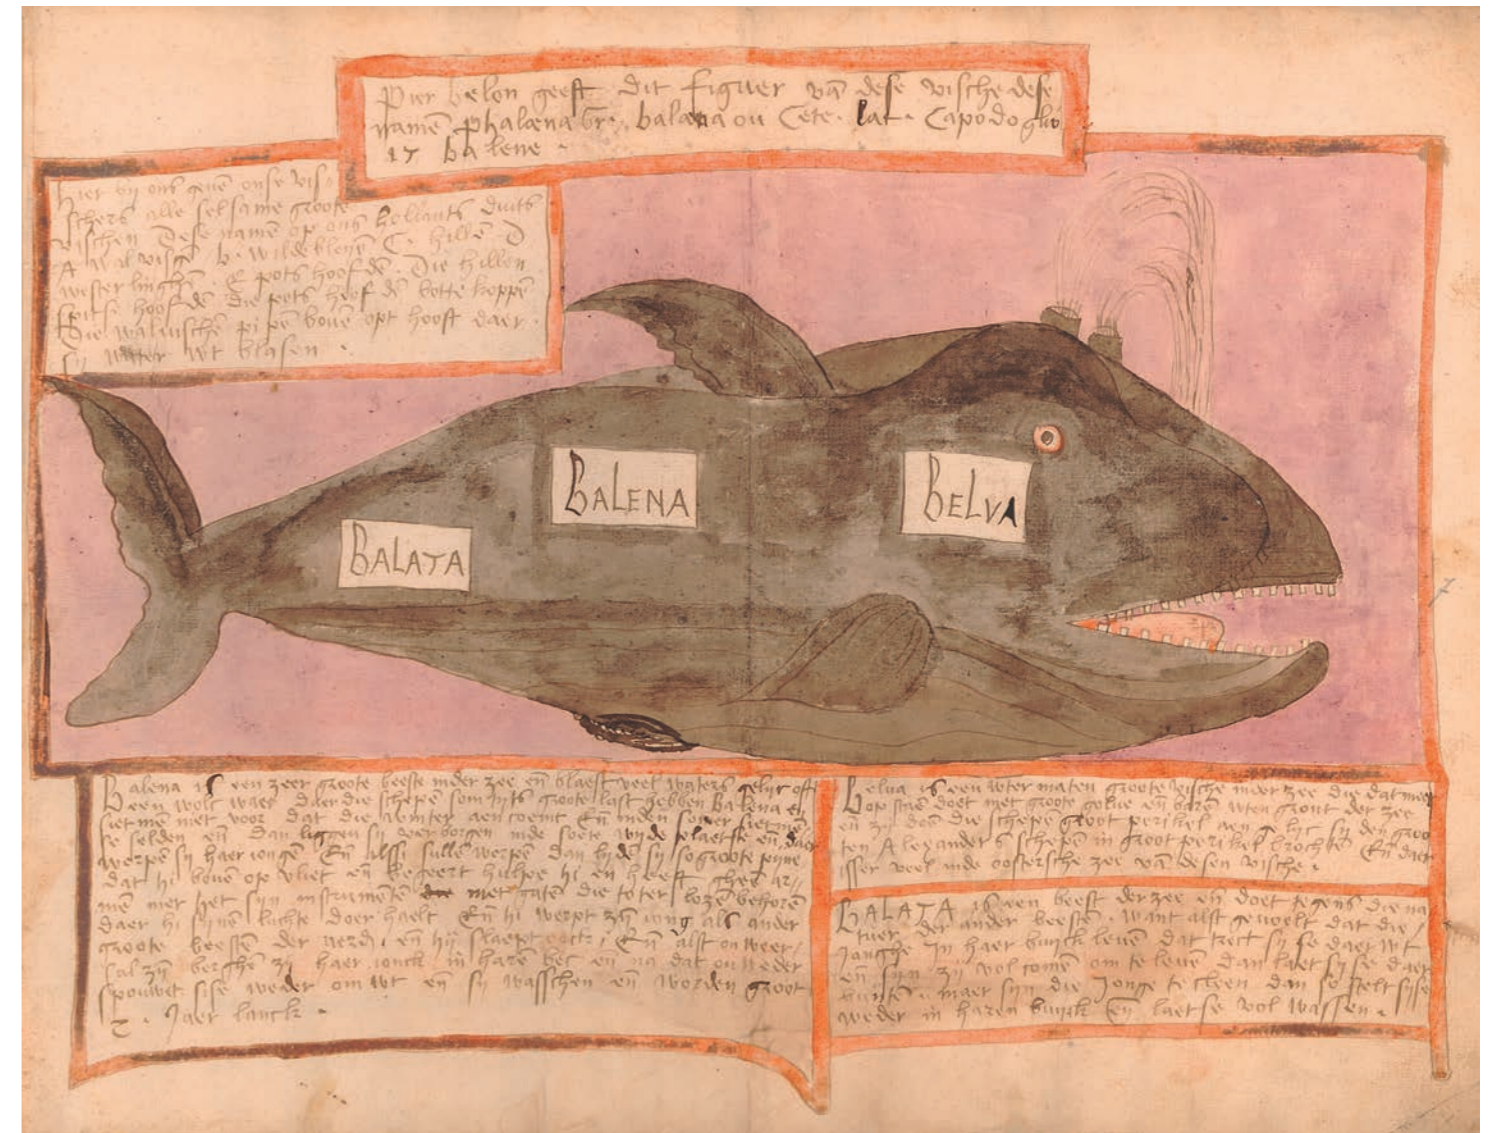 Pier belon geeft dit figuer vā dese vische dese
namē phalæna gr. balæna ou Cete. lat. Capodoglio
it balene.
Hier bij ons geuē onse vis-
schers alle selsame groote
visschen dese namē op ons hollants duits
A walvisch b. wildekleyē C. hillē D
wisterlinghē. E potshoofdē. Die hillen
spitse hoofdē die potshoofdē botte koppē
Die walvischē pipē bouē opt hooft daer
sij water wt blasen.
BALATA
BALENA
BELVA
Balena is een zeer groote beeste inder zee eñ blaest veel waters gelijc oft
een wolc waer daer die schepē somtyts groote last hebben Balena en
siet mē niet voor dat die winter aencoemt Eñ inden somer siet mē
se selden eñ dan liggen sij verborgen inde soete wijde plaetse eñ daer
werpē sij haer iongē Eñ alssi sullē werpē dan lydē sij so groote pijne
dat hi bouē op vliet eñ begeert hulpe hi en heeft gheē ar-
mē mer het sijn instrumētē met gatē die toter lozē behorē
daer hi sijnē lichte doer haelt Eñ hi werpt zijn iong als ander
groote beestē der eñ hij slaept Eñ alst onweer
sal zijn berghē zij haer ionck in harē bec eñ na dat onweder
spouwt sise weder om wt eñ sij wasschen eñ worden groot
Jaer lanck.
Belua is een wter maten groote vische inder zee die dat meer
op staē doet met groote golue eñ barē wten gront der zee
eñ zij doē die schepē groot perikel aen gelijc sij den groo
ten Alexanders schepē in groot perikel brochtē Eñ daer
isser veel inde oostersche zee vā desen vische.
BALATA is een beest der zee eñ doet tegens die na
tuer der ander beestē. want alst gevoelt dat die
Jonghe in haer buyck leuē dat trect sij se daer wt
eñ sijn zij volcomē om te leuē dan laet sij se daer
buytē. maer sijn die Jonge te cleen dan so stelt sijse
weder in haren buyck Eñ laetse vol wassen.